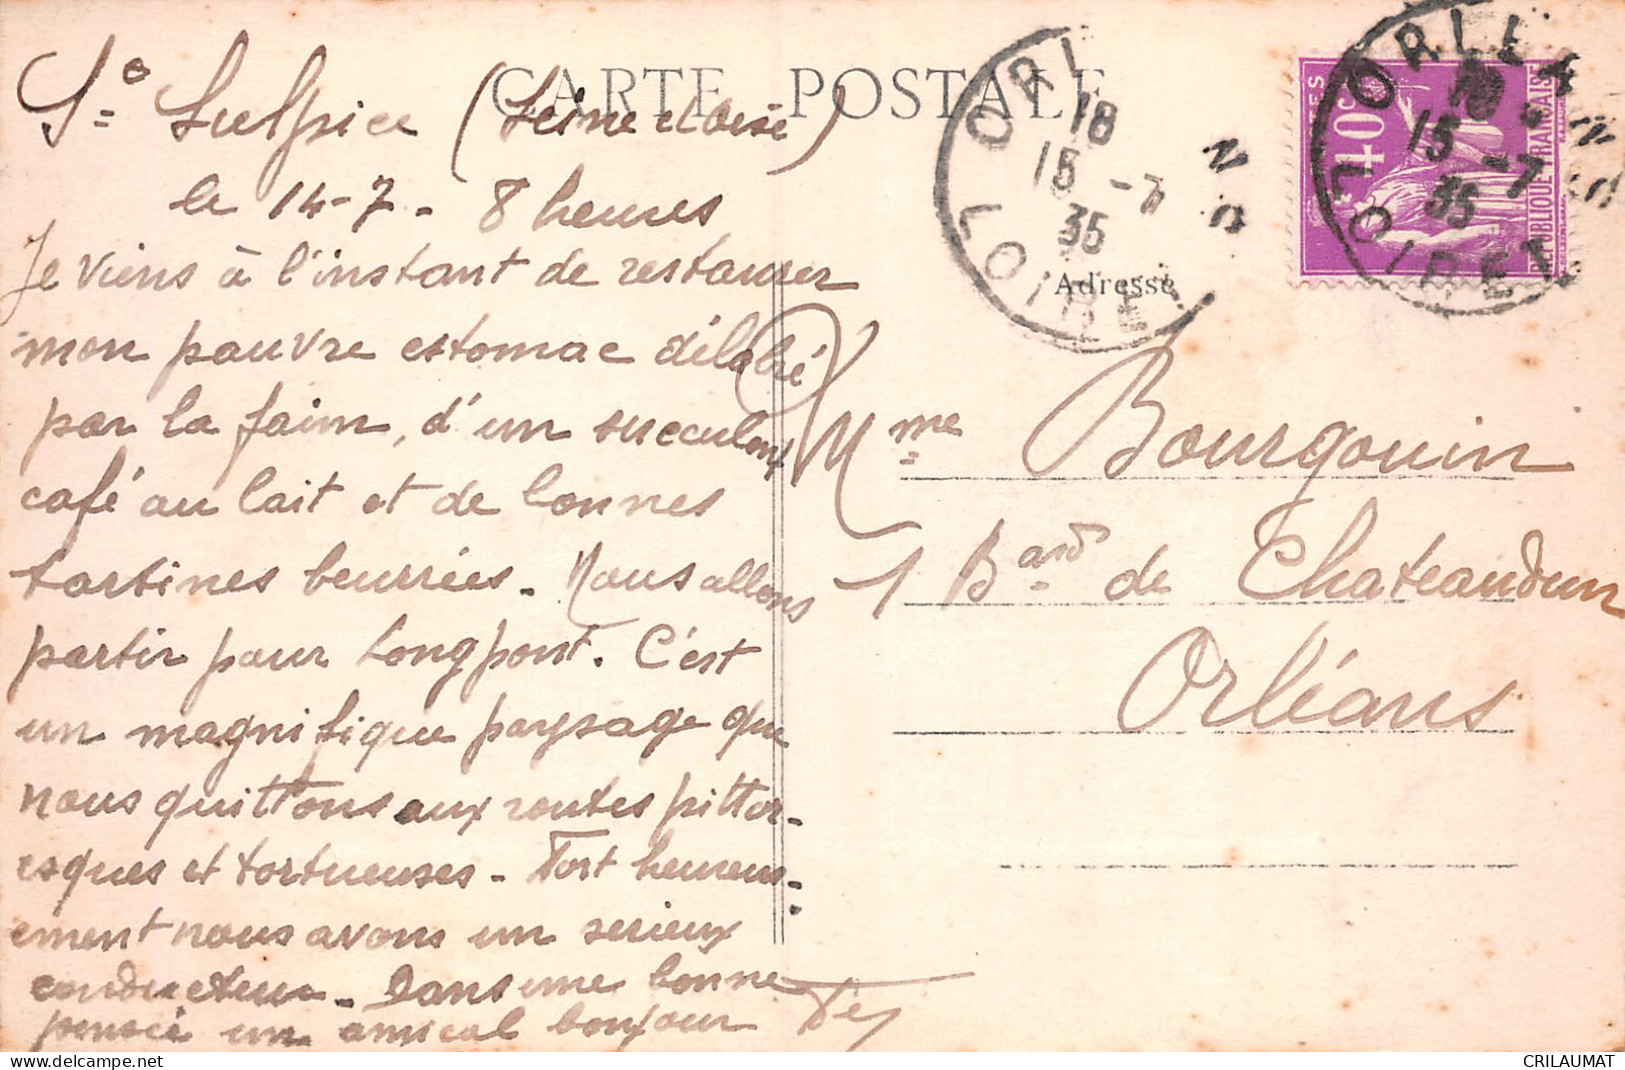 CARTE POSTALE
St Sulpice (Seine et Oise)
le 14-7- 8 heures
Je viens à l'instant de restaurer
mon pauvre estomac délabré
par la faim, d'un succulent
café au lait et de bonnes
tartines beurrées. Nous allons
partir pour Longpont. C'est
un magnifique paysage que
nous quittons aux routes pittor-
esques et tortueuses - Fort heureus-
ement nous avons un serieux
conducteur - Dans une bonne
pensée un amical bonjour
ORLEANS
18
15 -7
35
LOIRET
ORLEANS
18
15 -7
35
LOIRET
40c
POSTES
REPUBLIQUE FRANCAISE
Adresse
Mme Bourgouin
1 Bard de Chateaudun
Orléans
delcampe.net
CRILAUMAT